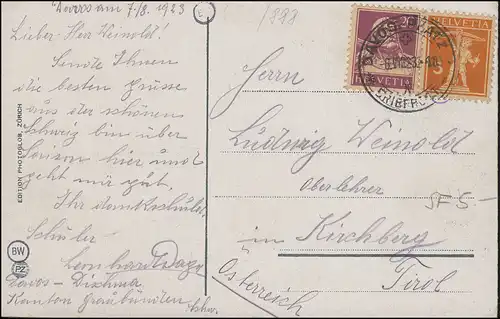 Davos am 7/8. 1923
Lieber Herr Weinold!
Sende Ihnen
die besten Grüsse
aus der schönen
Schweiz bin über
Saison hier und
geht mir gut.
Ihr dankschuld.
Schüler
Leonhard
Davos – Dischma
Kanton Graubünden
Schw.
EDITION PHOTOGLOB, ZÜRICH
BW
PZ
1888
HELVETIA
HELVETIA
DAVOS-PLATZ
Herrn
Ludwig Weinold
Oberlehrer
in Kirchberg
Tirol
Österreich